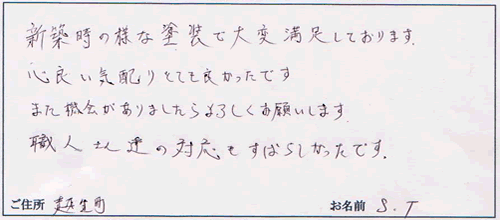 新築時の様な塗装で大変満足しております.
心良い気配りとても良かったです
また機会がありましたらよろしくお願いします.
職人さん達の対応もすばらしかったです.
ご住所 越生町 お名前 S.T